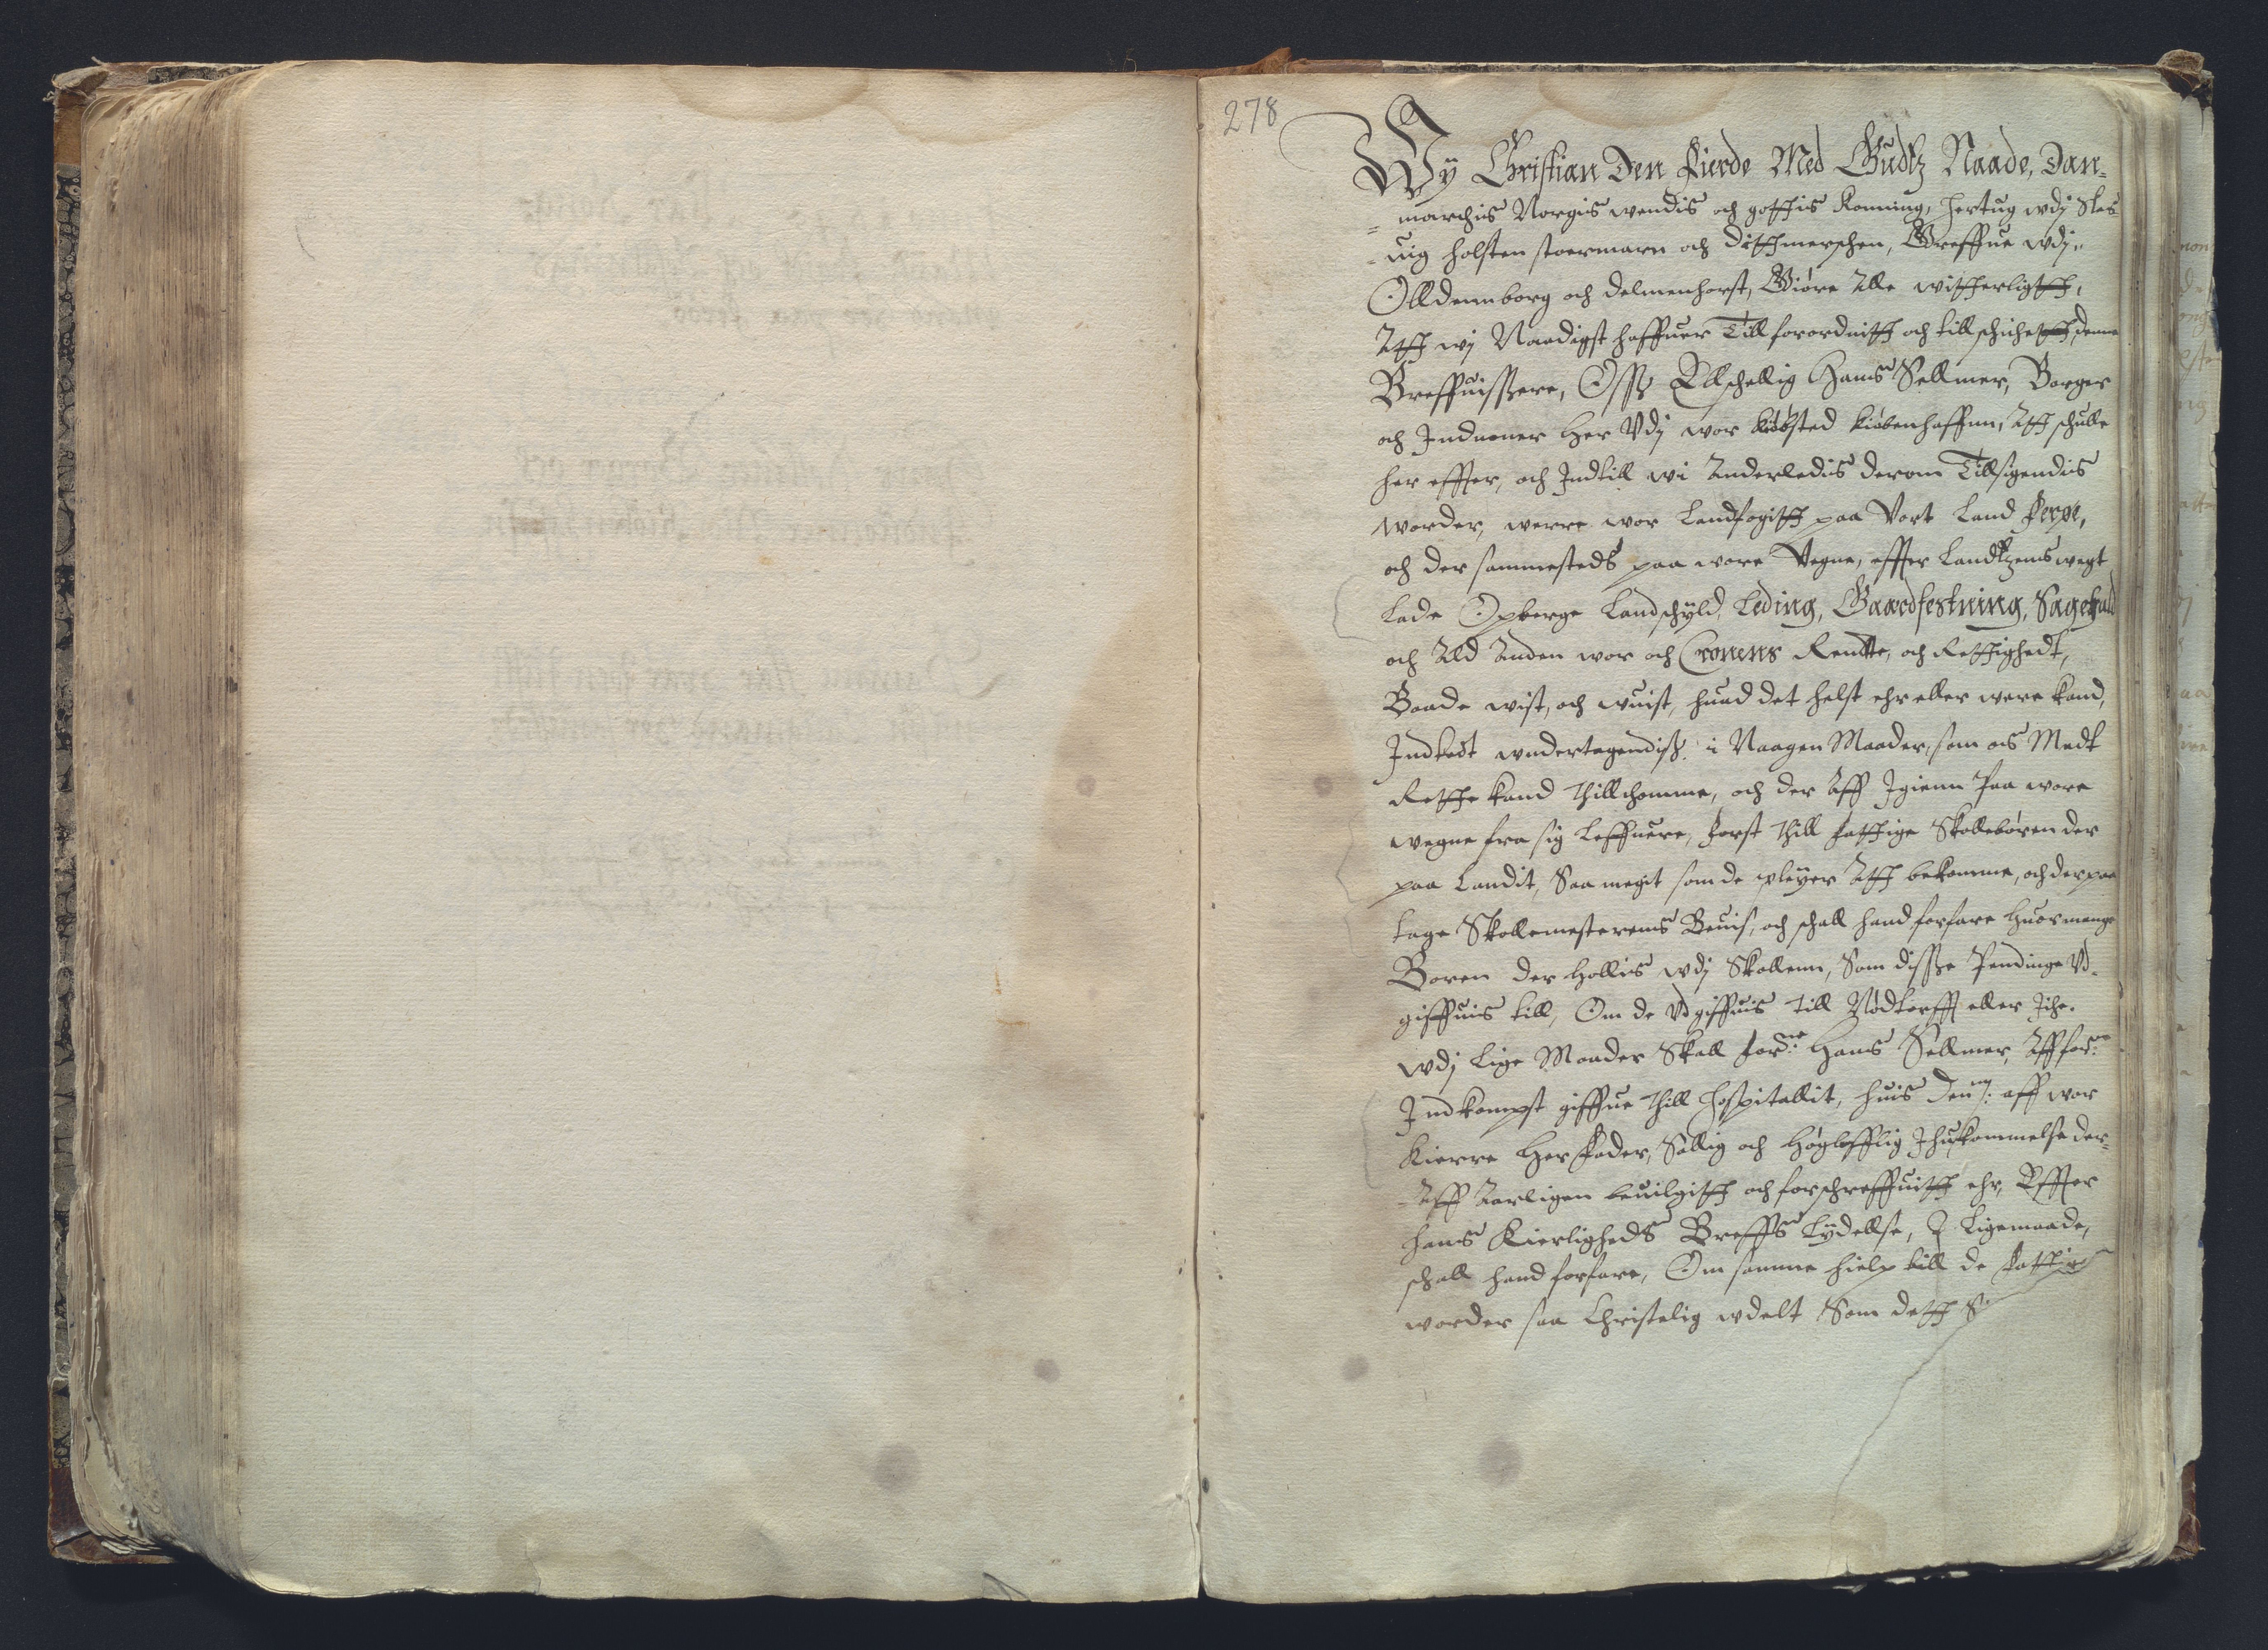 278
Wÿ Christian Den Fierde Med Gudtz Naade, Dan-
marchis Norgis wendis och gotthis Konning, hertug wdj Sles-
uig holsten stormarn och Ditthmerschen, Greffue wdj
Olldennborg och delmenhorst, Giøre Alle witherligtt,
Att wj Naadigst haffuer Till forordnitt och till schichett, denne
Breffuissere, Oss Elschellig Hans Sellmer, Borger
och Indwoner her Vdj wor kiøbsted kiøbenhaffnn, Att schulle
her effter, och Indtill wi Anderledis derom Tillsigendis
worder, werre wor Landfogitt paa Vort Land Ferøe,
och der sammesteds paa wore Vegne, effter Landtzens wegt
lade Opberge Landschÿld, Leding, Gaardfestning, Sagefald
och Ald Anden wor och Cronens Rendtte, och Rettighedt,
Baade wist, och wuist, huad det helst ehr eller were kand,
Indtedt wndertagendiss i Naagen Maader, som os Medt
Rette kand thillchomme, och der Aff Igienn Paa wore
wegne fra sig Leffuere, Først thill Fattige Skollebøren der
paa Landit, Saa megit som de pleÿer Att bekomme, och der paa
tage Skollemesterens Beuis, och schall hand forfare huor mange
Boren der hollis wdj Skollenn, Som disse Pendinge Vd-
giffuis till, Om de Vdgiffuis till Nødtørfft eller Iche.
wdj Lige Maader Skall forne Hans Sellmer, Aff forne
Indkompst giffue thill Hospitallit, huis denn: aff wor
Kierre Her Fader, Sallig och høglofflig Ihukommelse der-
Aff Aarligen beuilgitt och forschreffuitt ehr, Effter
hans Kierligheds Breffs Lÿdellse, I Ligemaade,
schall hand forfare, Om samme hielp till de Fattige
worder saa Christelig wdelt Som dett